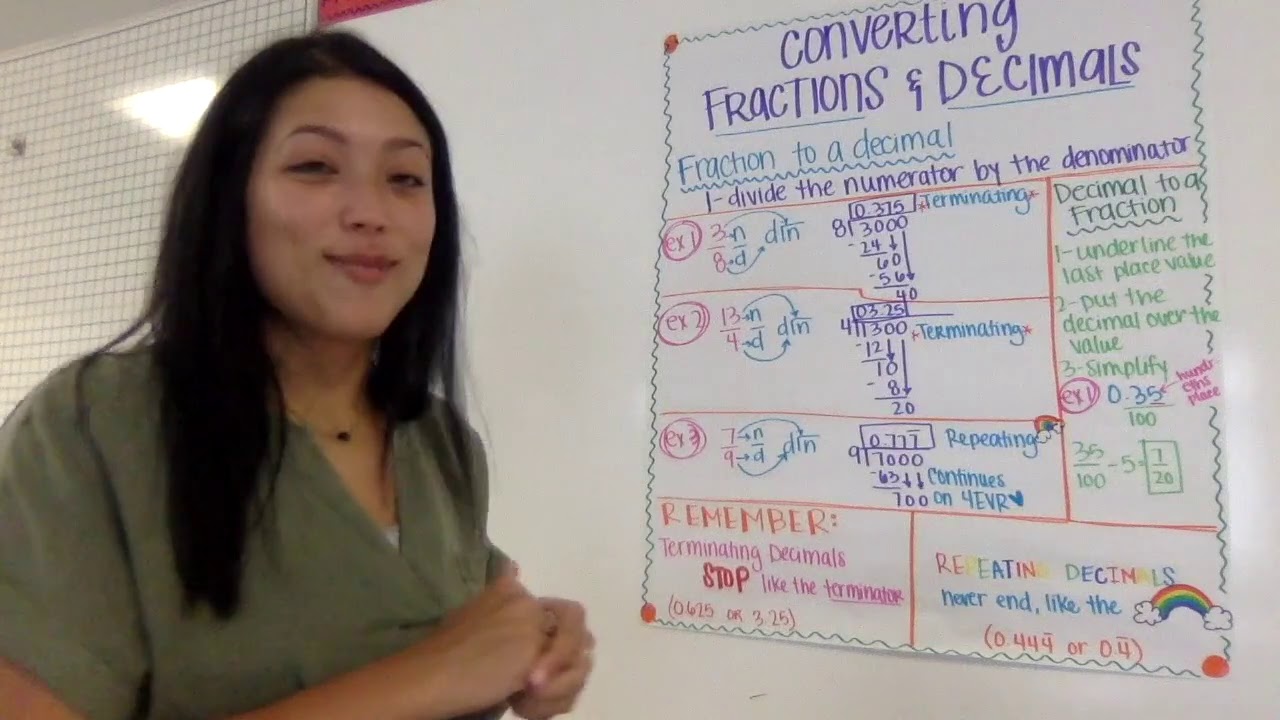 Converting
Fractions & Decimals
Fraction to a decimal
1-divide the numerator by the denominator
ex1
3→n
8→d
d⟌n
0.375
8⟌3000
-24
60
-56
40
*Terminating*
ex2
13→n
4→d
d⟌n
03.25
4⟌1300
-12
10
-8
20
*Terminating*
ex3
7→n
9→d
d⟌n
0.777̅
9⟌7000
-63
700
Repeating
Continues
on 4EVR
Decimal to a
Fraction
1-underline the
last place value
2-put the
decimal over the
value
3-Simplify
ex1
0.35
100
hundr
eths
place
35
100
-5=
7
20
REMEMBER:
Terminating Decimals
STOP like the terminator
(0.625 or 3.25)
REPEATING DECIMALS
never end, like the
(0.444̅ or 0.4̅)